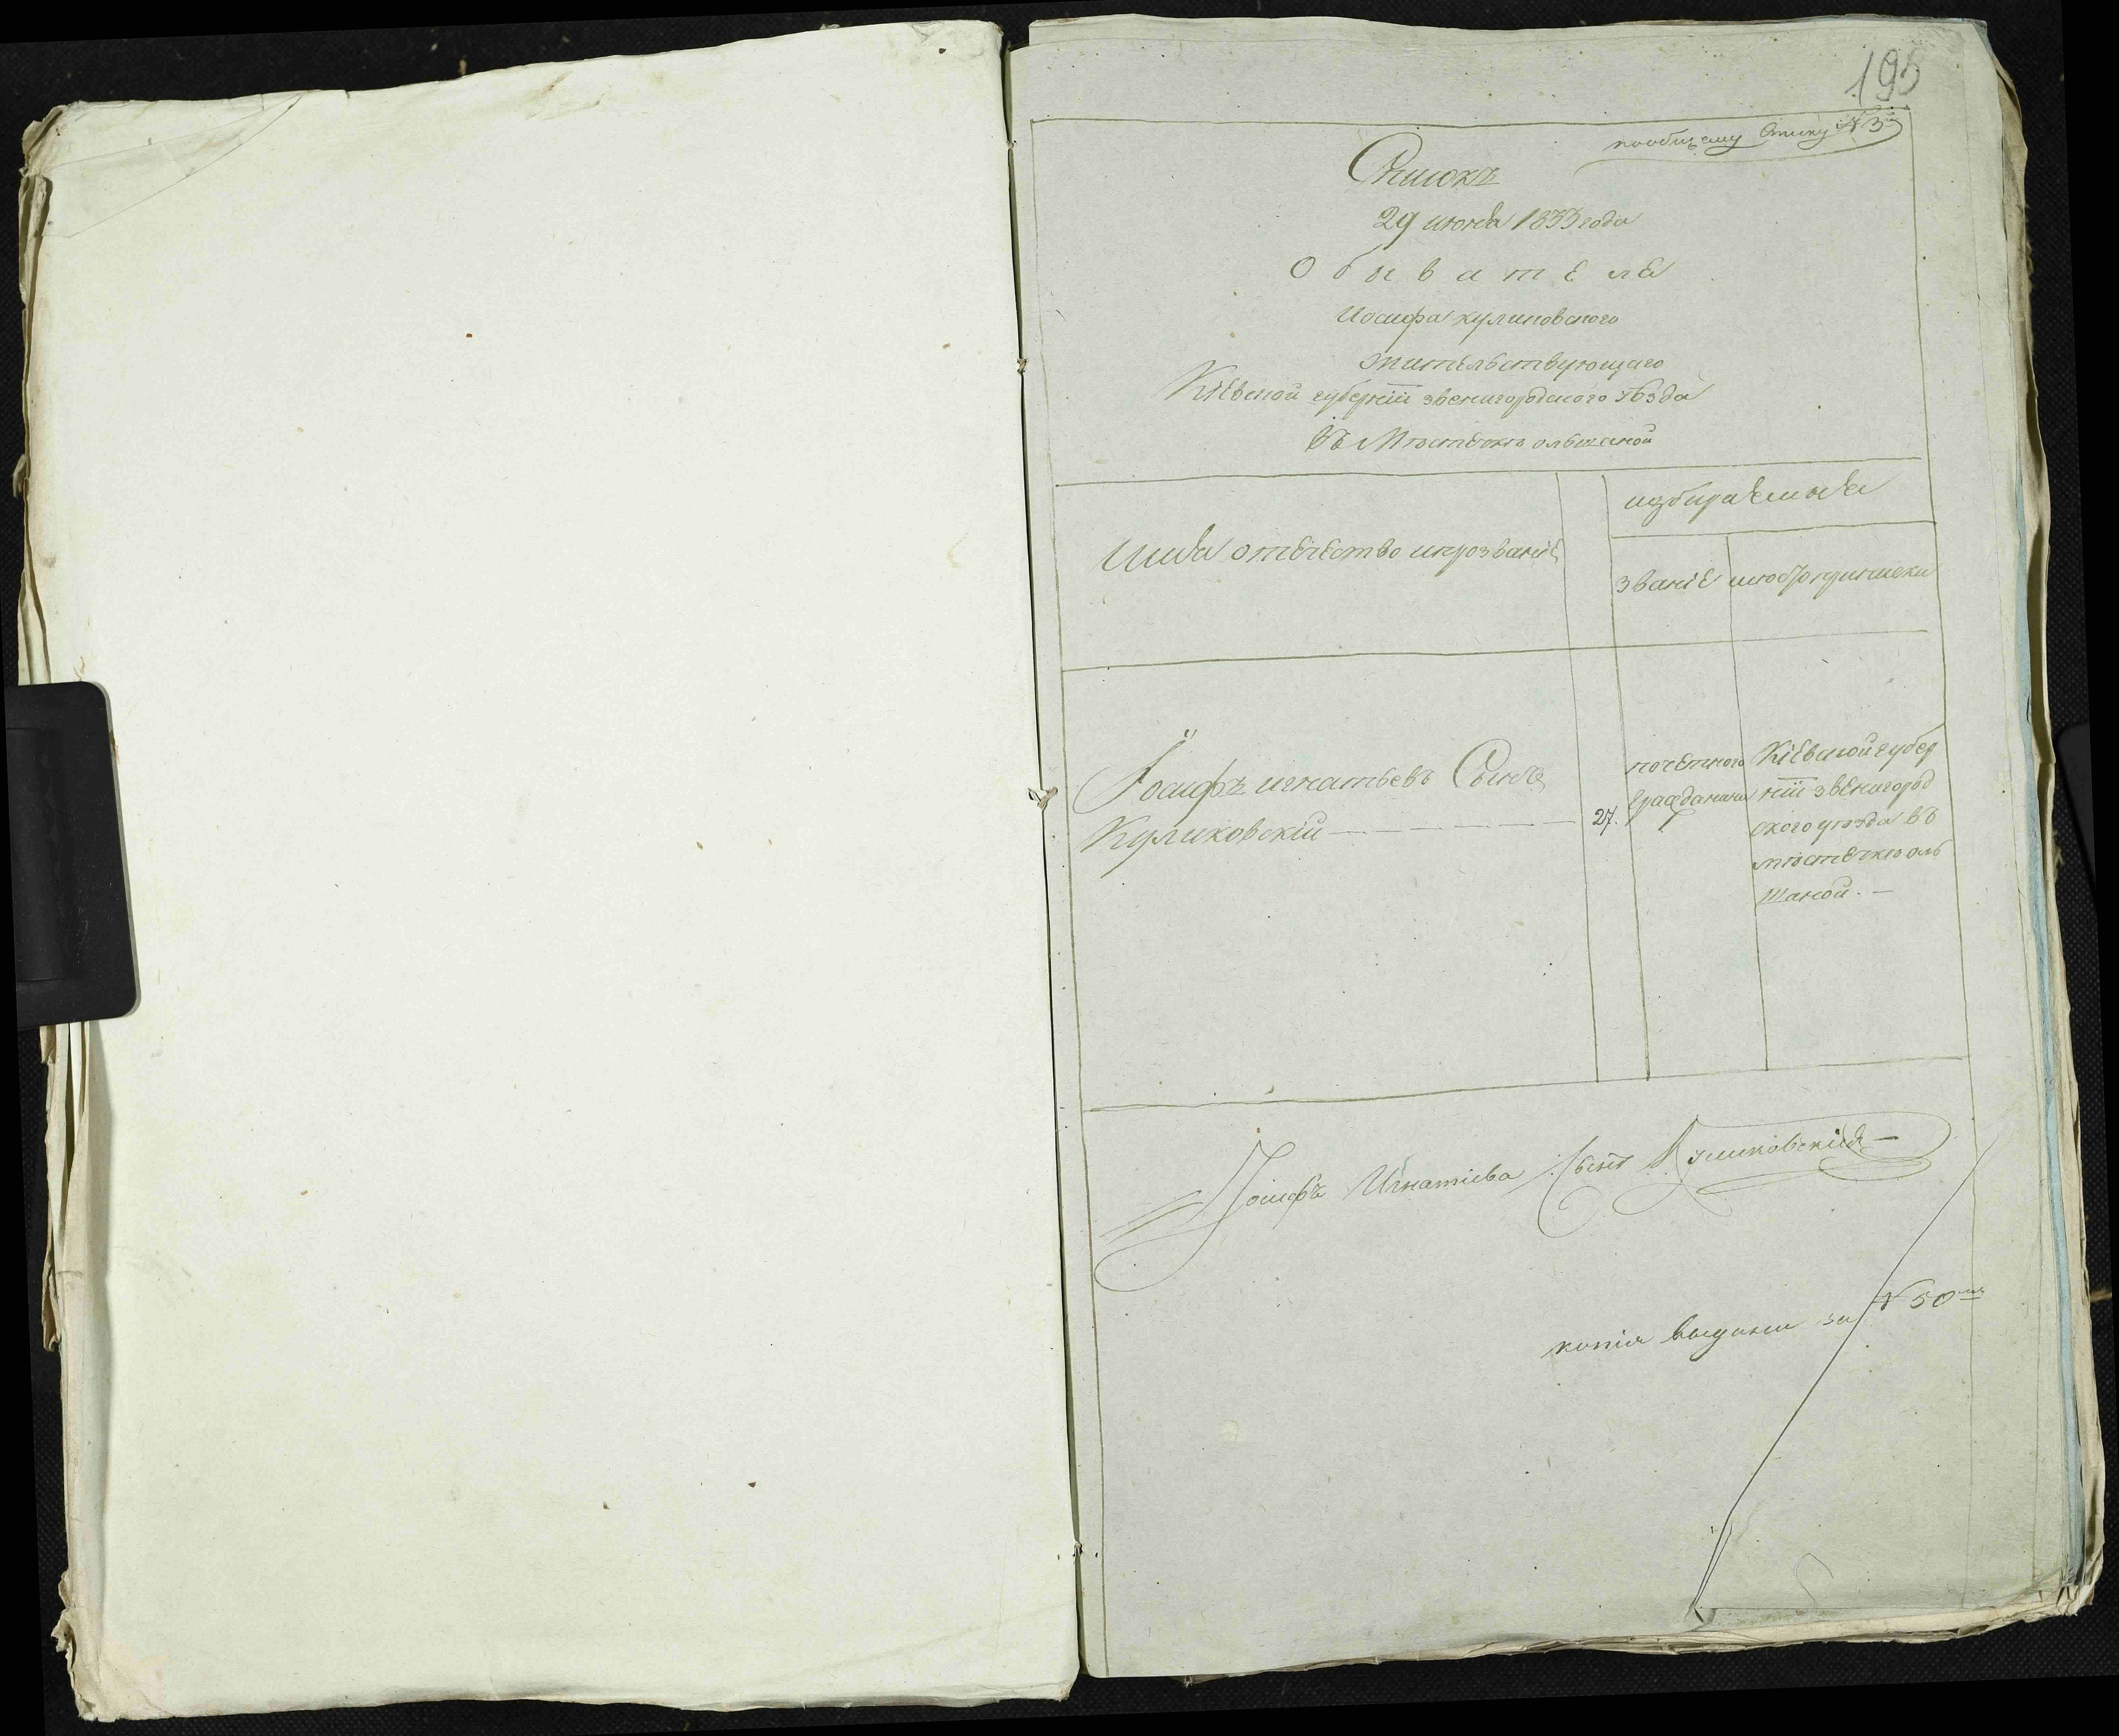 195
пообщему Списку №3й
Списокъ
29 июня 1833 года
Обывателя
Иосифа куликовского
жительствующаго
Кіевской губерніи звенигородского уѣзда
въ Мѣстечкѣ ольшаной
избираемыя
Имя отечество ипрозваніе
званіе
мѣсто приписки
Іосифъ игнатьевъ Сынъ
Куликовскій
27.
почетного
Гражданина
Кіевской губер
ніи звенигород
ского уѣзда въ
мѣстечкѣ оль
шаной. —
Іосифъ Игнатіева Сынъ Куликовскій —
копія выдана за № 50м